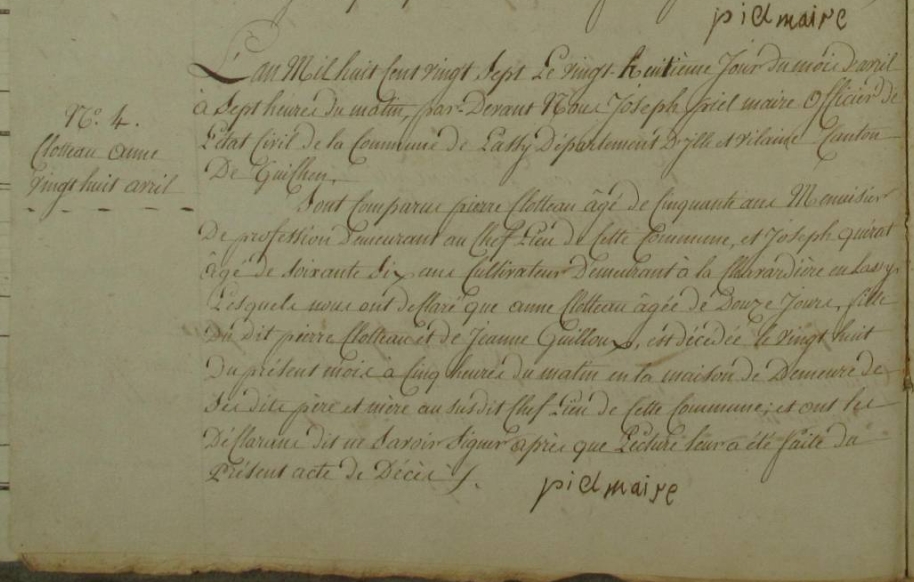 piel maire
L'an Mil huit Cent vingt Sept Le vingt-huitieme Jour du mois d'avril
à Sept heures du matin, par-Devant Nous Joseph piel maire Officier de
L'état Civil de la Commune de Lassy Département D'ylle et vilaine Canton
De Guichen.
Sont Comparus pierre Clotteau âgé de Cinquante ans Menuisier
De profession Demeurant au Chef Lieu de Cette Commune, et Joseph
âgé de Soixante Six ans Cultivateur Demeurant à la en Lassy
Lesquels nous ont declaré que anne Clotteau âgée de Douze Jours, fille
Du dit pierre Clotteau et de Jeanne Guilloux, est décédée le vingt huit
Du présent mois à Cinq heures du matin en la maison de Demeure de
Ses dits père et mère au susdit Chef Lieu de Cette Commune; et ont les
Déclarans dit ne Savoir Signer après que Lecture leur a été faite du
Présent acte de Décès.
piel maire
No. 4.
Clotteau anne
vingt huit avril